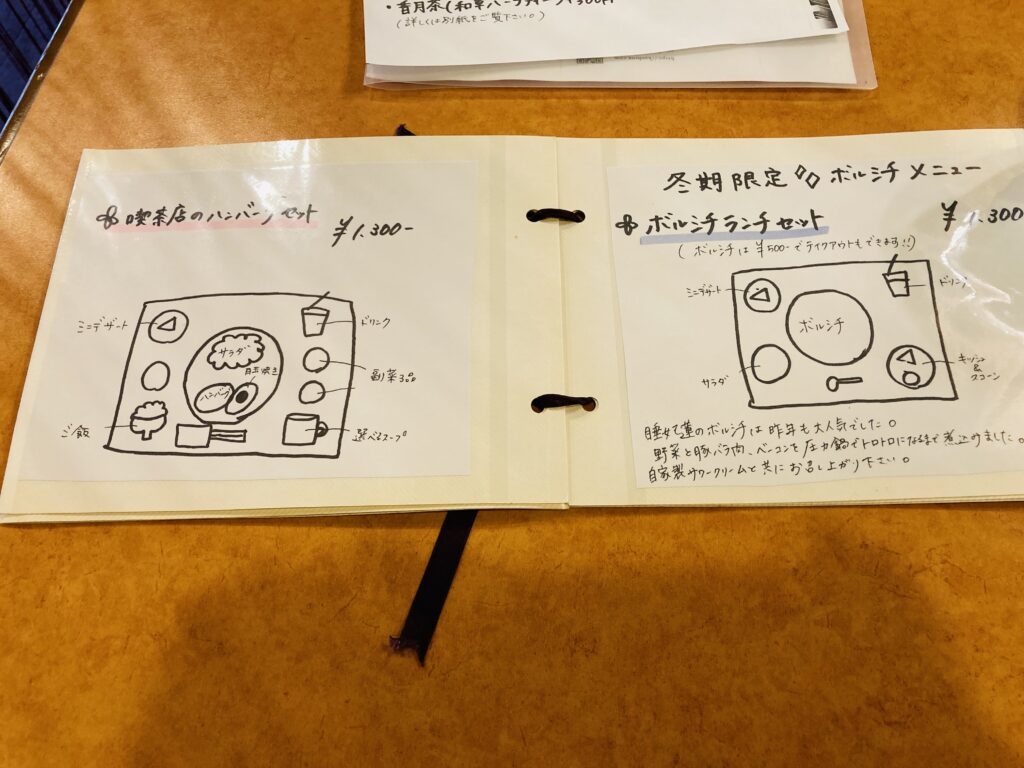 ・香月茶(和草ハーブティー)¥300円
(詳しくは別紙をご覧下さい。)
喫茶店のハンバーグセット
¥1.300-
ミニデザート
ドリンク
サラダ
目玉焼き
ハンバーグ
副菜3コ
ご飯
選べるスープ
冬期限定 ボルシチメニュー
ボルシチランチセット
¥1.300
(ボルシチは¥500-でテイクアウトもできます!!)
ミニデザート
ドリンク
ボルシチ
サラダ
キッシュ
&
スコーン
睡蓮のボルシチは昨年も大人気でした。
野菜と豚バラ肉、ベーコンを圧力鍋でトロトロになるまで煮込めました。
自家製サワークリームと共にお召し上がり下さい。